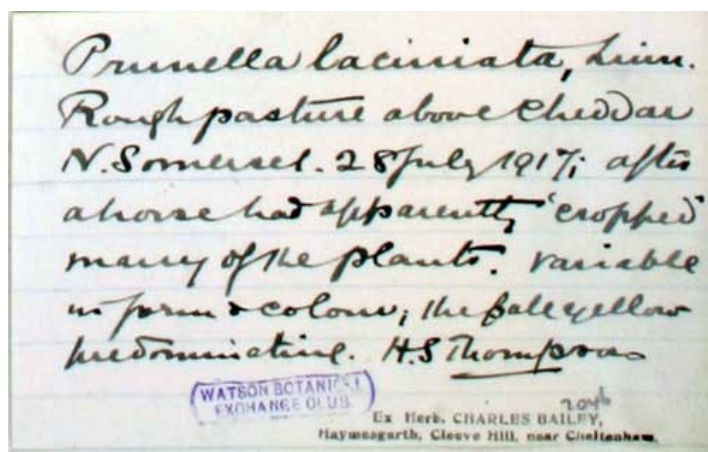 Prunella laciniata, Linn.
Rough pasture above Cheddar
N. Somerset. 28 July 1917; after
a horse had apparently 'cropped'
many of the plants. Variable
in form & colour; the pale yellow
predominating. H.S Thompson
WATSON BOTANICAL
EXCHANGE CLUB.
204b
Ex Herb. CHARLES BAILEY,
Haymesgarth, Cleeve Hill, near Cheltenham.